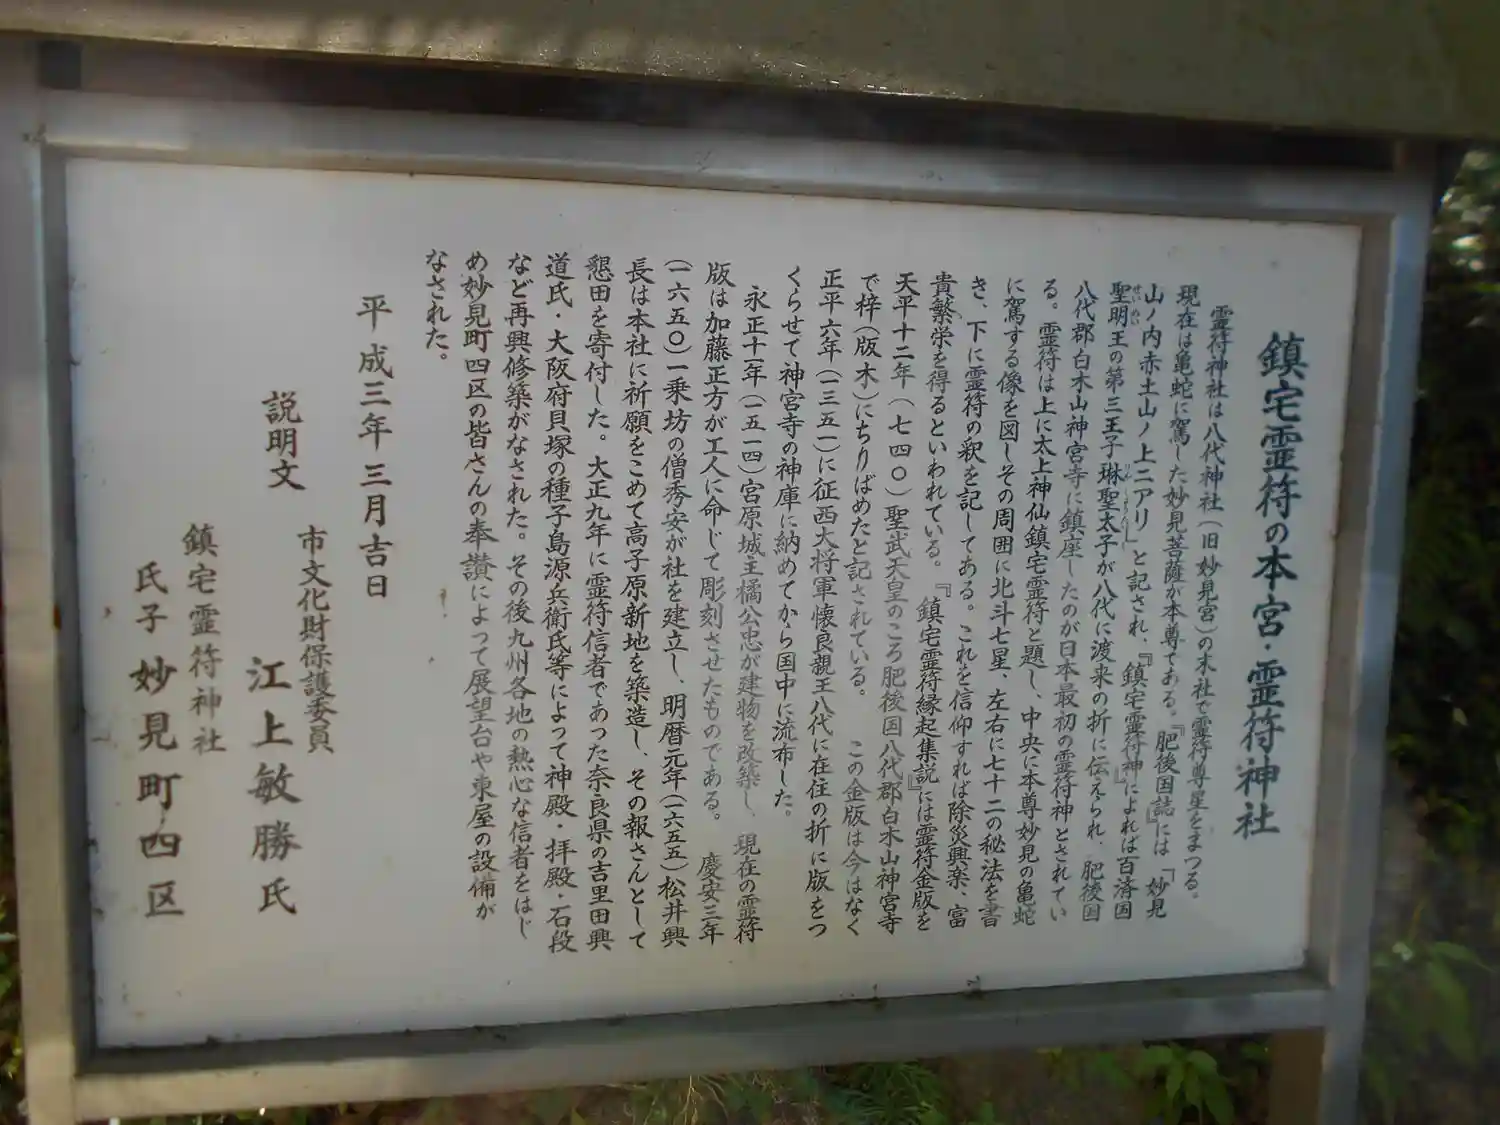 鎮宅霊符の本宮・霊符神社
霊符神社は八代神社(旧妙見宮)の末社で霊符尊星をまつる。
現在は亀蛇に駕した妙見菩薩が本尊である。『肥後国誌』には「妙見
山ノ内赤土山ノ上ニアリ」と記され、『鎮宅霊符神』によれば百済国
聖明王の第三王子琳聖太子が八代に渡来の折に伝えられ、肥後国
八代郡白木山神宮寺に鎮座したのが日本最初の霊符神とされてい
る。霊符は上に太上神仙鎮宅霊符と題し、中央に本尊妙見の亀蛇
に駕する像を図しその周囲に北斗七星、左右に七十二の秘法を書
き、下に霊符の釈を記してある。これを信仰すれば除災興楽、富
貴繁栄を得るといわれている。『鎮宅霊符縁起集説』には霊符金版を
天平十二年(七四〇)聖武天皇のころ肥後国八代郡白木山神宮寺
で梓(版木)にちりばめたと記されている。 この金版は今はなく
正平六年(一三五一)に征西大将軍懐良親王八代に在住の折に版をつ
くらせて神宮寺の神庫に納めてから国中に流布した。
永正十一年(一五一四)宮原城主橘公忠が建物を改築し、現在の霊符
版は加藤正方が工人に命じて彫刻させたものである。 慶安三年
(一六五〇)一乗坊の僧秀安が社を建立し、明暦元年(一六五五)松井興
長は本社に祈願をこめて高子原新地を築造し、その報さんとして
懇田を寄付した。大正九年に霊符信者であった奈良県の吉里田興
道氏・大阪府貝塚の種子島源兵衛氏等によって神殿・拝殿・石段
など再興修築がなされた。その後九州各地の熱心な信者をはじ
め妙見町四区の皆さんの奉讃によって展望台や東屋の設備が
なされた。
平成三年三月吉日
市文化財保護委員
説明文 江上敏勝氏
鎮宅霊符神社
氏子 妙見町四区